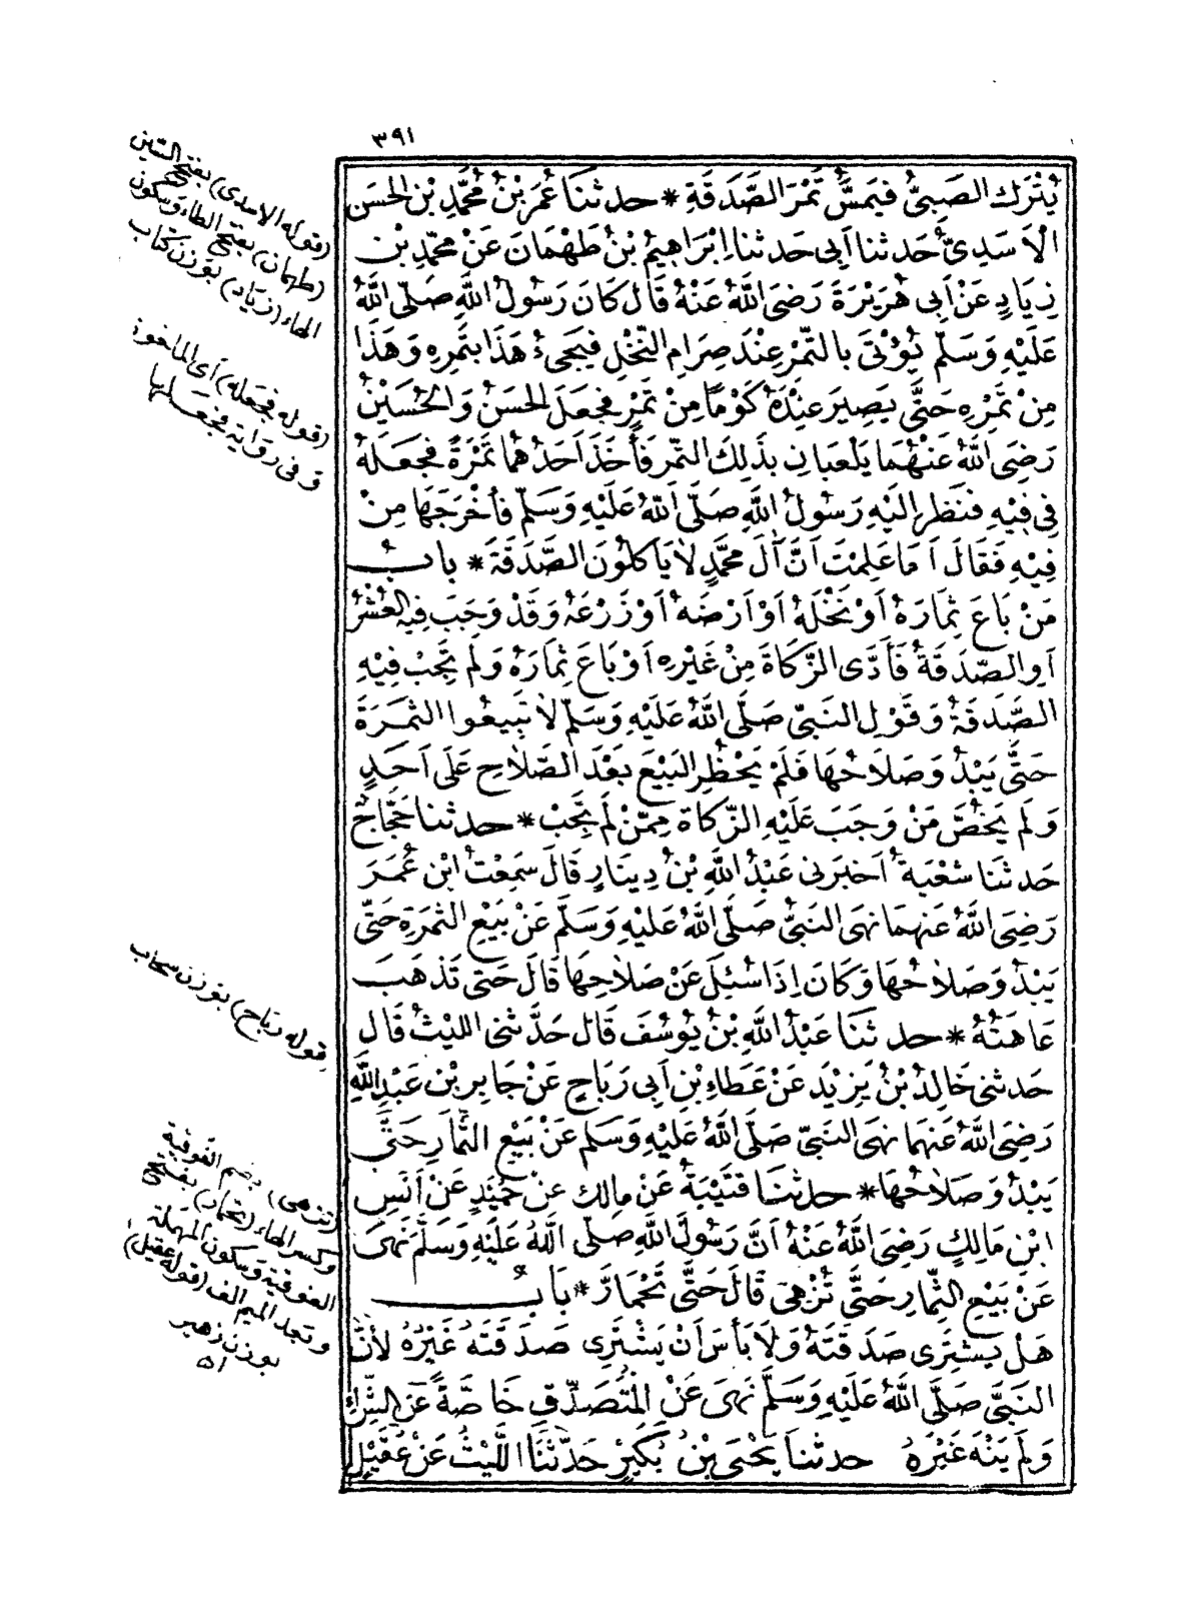 ٣٩١
يُتْرَكُ الصَبِيُّ فَيَمَسُّ تَمْرَ الصَّدَقَةِ * حدثنا عُمَرُ بْنُ مُحَمَّدِ بْنِ الحَسَنِ
الْأَسَدِيُّ حَدثنا اَبِى حَدثنا اِبْرَاهِيمُ بْنُ طَهْمَانَ عَنْ مُحَمَّدِ بْنِ
زِيَادٍ عَنْ اَبِى هُرَيْرَةَ رَضِىَ اللَّهُ عَنْهُ قَالَ كَانَ رَسُولُ اللَّهِ صَلَّى اللَّهُ
عَلَيْهِ وَسَلَّمَ يُؤْتَى بِالتَّمْرِ عِنْدَ صِرَامِ النَّخْلِ فَيَجِىءُ هَذَا بِتَمْرِهِ وَهَذَا
مِنْ تَمْرِهِ حَتَّى يَصِيرَ عِنْدَهُ كَوْمًا مِنْ تَمْرٍ فَجَعَلَ الحَسَنُ وَالحُسَيْنُ
رَضِىَ اللَّهُ عَنْهُمَا يَلْعَبَانِ بِذَلِكَ التَّمْرِ فَأَخَذَ اَحَدُهُمَا تَمْرَةً فَجَعَلَهُ
فِى فِيْهِ فَنَظَرَ اِلَيْهِ رَسُولُ اللَّهِ صَلَّى اللَّهُ عَلَيْهِ وَسَلَّمَ فَأَخْرَجَهَا مِنْ
فِيْهِ فَقَالَ اَمَا عَلِمْتَ اَنَّ آلَ مُحَمَّدٍ لَا يَأْكُلُونَ الصَّدَقَةَ * بَابُ
مَنْ بَاعَ ثِمَارَهُ اَوْ نَخْلَهُ اَوْ اَرْضَهُ اَوْ زَرْعَهُ وَقَدْ وَجَبَ فِيهِ العُشْرُ
اَوِ الصَّدَقَةُ فَأَدَّى الزَّكَاةَ مِنْ غَيْرِهِ اَوْ بَاعَ ثِمَارَهُ وَلَمْ تَجِبْ فِيْهِ
الصَّدَقَةُ وَقَوْلِ النَبِيِّ صَلَّى اللَّهُ عَلَيْهِ وَسَلَّمَ لَا تَبِيعُوا الثَّمَرَةَ
حَتَّى يَبْدُوَ صَلَاحُهَا فَلَمْ يَحْظُرِ البَيْعَ بَعْدَ الصَّلَاحِ عَلَى اَحَدٍ
وَلَمْ يَخُصَّ مَنْ وَجَبَ عَلَيْهِ الزَّكَاةُ مِمَّنْ لَمْ تَجِبْ * حدثنا حَجَّاجٌ
حَدثنَا شُعْبَةُ اَخبَرَنِى عَبْدُ اللَّهِ بْنُ دِينَارٍ قَالَ سَمِعْتُ ابْنَ عُمَرَ
رَضِىَ اللَّهُ عَنهمَا نَهَى النَبِيُّ صَلَّى اللَّهُ عَلَيْهِ وَسَلَّمَ عَنْ بَيْعِ الثَّمَرَةِ حَتَّى
يَبْدُوَ صَلَاحُهَا وَكَانَ اِذَا سُئِلَ عَنْ صَلَاحِهَا قَالَ حَتَّى تَذْهَبَ
عَاهَتُهُ * حدثنَا عَبْدُ اللَّهِ بْنُ يُوسُفَ قَالَ حَدَّثَنِى اللَيْثُ قَالَ
حَدثنى خَالِدُ بْنُ يَزِيْدَ عَنْ عَطَاءِ بْنِ اَبِى رَبَاحٍ عَنْ جَابِرِ بْنِ عَبْدِ اللَّهِ
رَضِىَ اللَّهُ عَنهُمَا نَهَى النَبِيُّ صَلَّى اللَّهُ عَلَيْهِ وَسَلَّمَ عَنْ بَيْعِ الثِّمَارِ حَتَّى
يَبْدُوَ صَلَاحُهَا * حدثنَا قُتَيْبَةُ عَنْ مالك عَنْ حُمَيْدٍ عَنْ اَنَسِ
ابْنِ مَالِكٍ رَضِىَ اللَّهُ عَنْهُ اَنَّ رَسُولَ اللَّهِ صَلَّى اللَّهُ عَلَيْهِ وَسَلَّمَ نَهَى
عَنْ بَيْعِ الثِّمَارِ حَتَّى تُزْهِىَ قَالَ حَتَّى تَحْمَارَّ * بَابُ
هَلْ يَشْتَرِى صَدَقَتَهُ وَلَا بَأْسَ اَنْ يَشْتَرِى صَدَقَتَهُ غَيْرُهُ لِأَنَّ
النَبِيَّ صَلَّى اللَّهُ عَلَيْهِ وَسَلَّمَ نَهَى عَنْ المُتَصَدِّقَ خَاصَّةً عَنِ الشِّرَاءِ
وَلَمْ يَنْهَ غَيْرَهُ حدثنا يَحْيَى بْنُ بُكَيْرٍ حَدَّثَنَا اللَّيْثُ عَنْ عُقَيْلٍ
(قوله الاسدى) بفتح السّين
(طهمان) بفتح الطاء وسكون
الهاء (زياد) بوزن كتاب
(قوله فجعله) اى المأخوذ
وفى رواية فجعلها
قوله رباح) بوزن سحاب
(تزهى) بضم الفوقية
وكسر الهاء (تحمار) بفتح
الفوقية وسكون المهملة
وبعد الميم الف (قوله عقيل)
بوزن زهير
اه